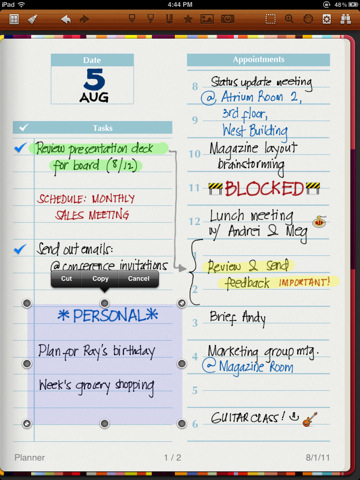 iPad
4:44 PM
Date
5
AUG
Tasks
Review presentation deck
for board (8/12)
SCHEDULE: MONTHLY
SALES MEETING
Send out emails:
@conference invitations
Cut Copy Cancel
*PERSONAL*
Plan for Ray's birthday
Week's grocery shopping
Appointments
8 Status update meeting
@ Atrium Room 2,
9 3rd floor,
West Building
10 Magazine layout
brainstorming
11 BLOCKED
12 Lunch meeting
w/ Andrei & Meg
1 Review & send
feedback IMPORTANT!
2
3 Brief Andy
4 Marketing group mtg.
@ Magazine Room
5
6 GUITAR CLASS!
Planner
1 / 2
8/1/11